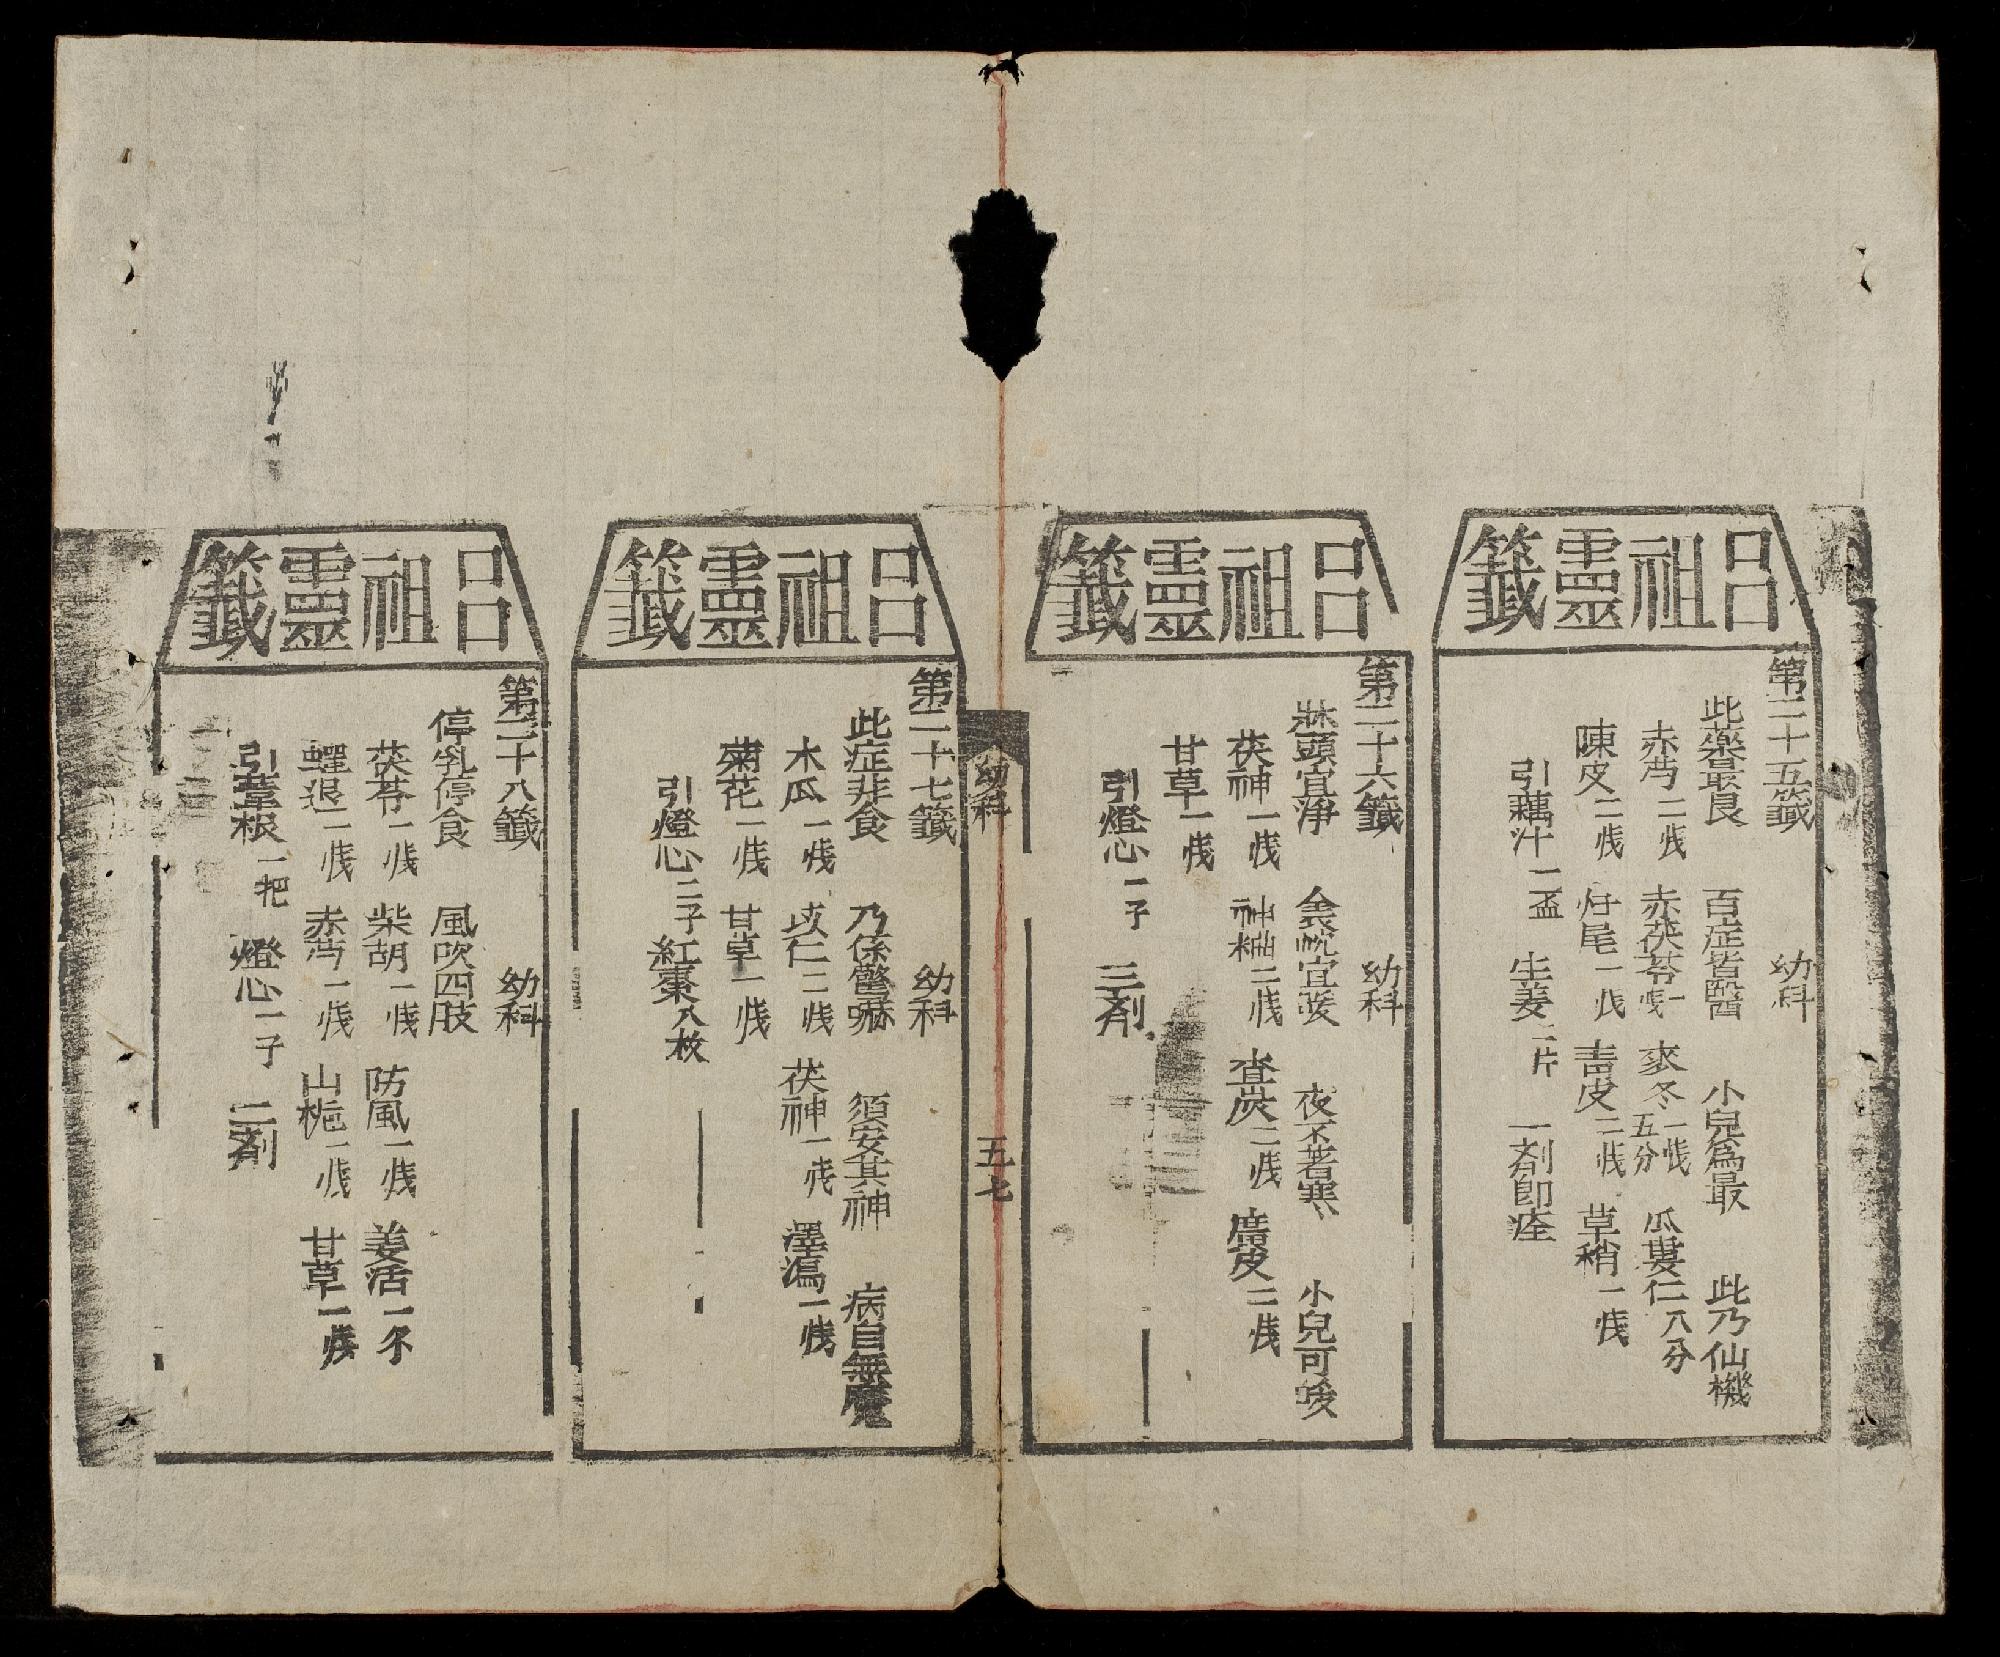 呂祖靈籤
第二十五籤　幼科
此藥最良　百症皆醫　小兒為最　此乃仙機
赤芍二戋　赤茯苓一戋　麥冬一戋五分　瓜蔞仁八分
陳皮二戋　归尾一戋　青皮二戋　草稍一戋
引藕汁一盃　生姜二片　一剤即痊
呂祖靈籤
第二十六籤　幼科
牀頭宜淨　衾枕宜暖　夜不著寒　小兒可痊
茯神一戋　神糆二戋　查炭二戋　廣皮二戋
甘草一戋
引燈心一子　三剤
幼科
五七
呂祖靈籤
第二十七籤　幼科
此症非食　乃係驚嚇　須安其神　病自無魔
木瓜一戋　苡仁二戋　茯神一戋　澤瀉一戋
菊花一戋　甘草一戋
引燈心二子　紅棗八枚
呂祖靈籤
第二十八籤　幼科
停乳停食　風吹四肢
茯苓一戋　柴胡一戋　防風一戋　姜活一个
蟬退一戋　赤芍一戋　山梔一戋　甘草一戋
引葦根一把　燈心一子　二剤